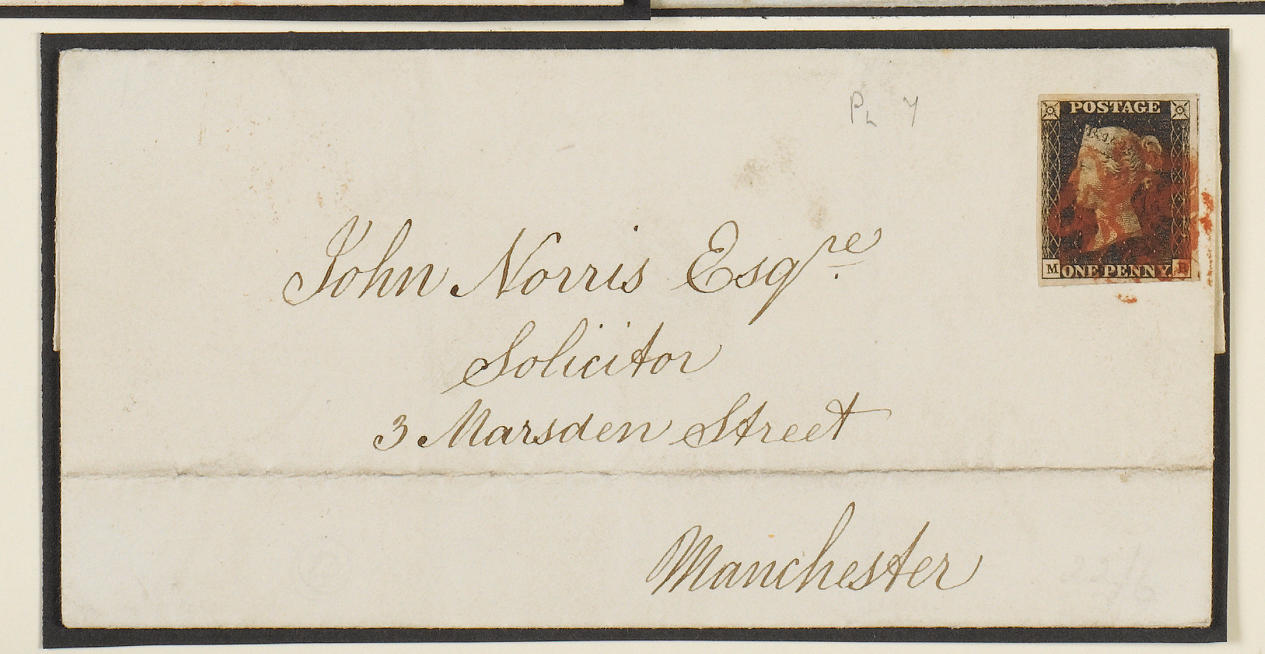 PL 7
POSTAGE
M ONE PENNY.
John Norris Esqre
Solicitor
3 Marsden Street
Manchester
22/6